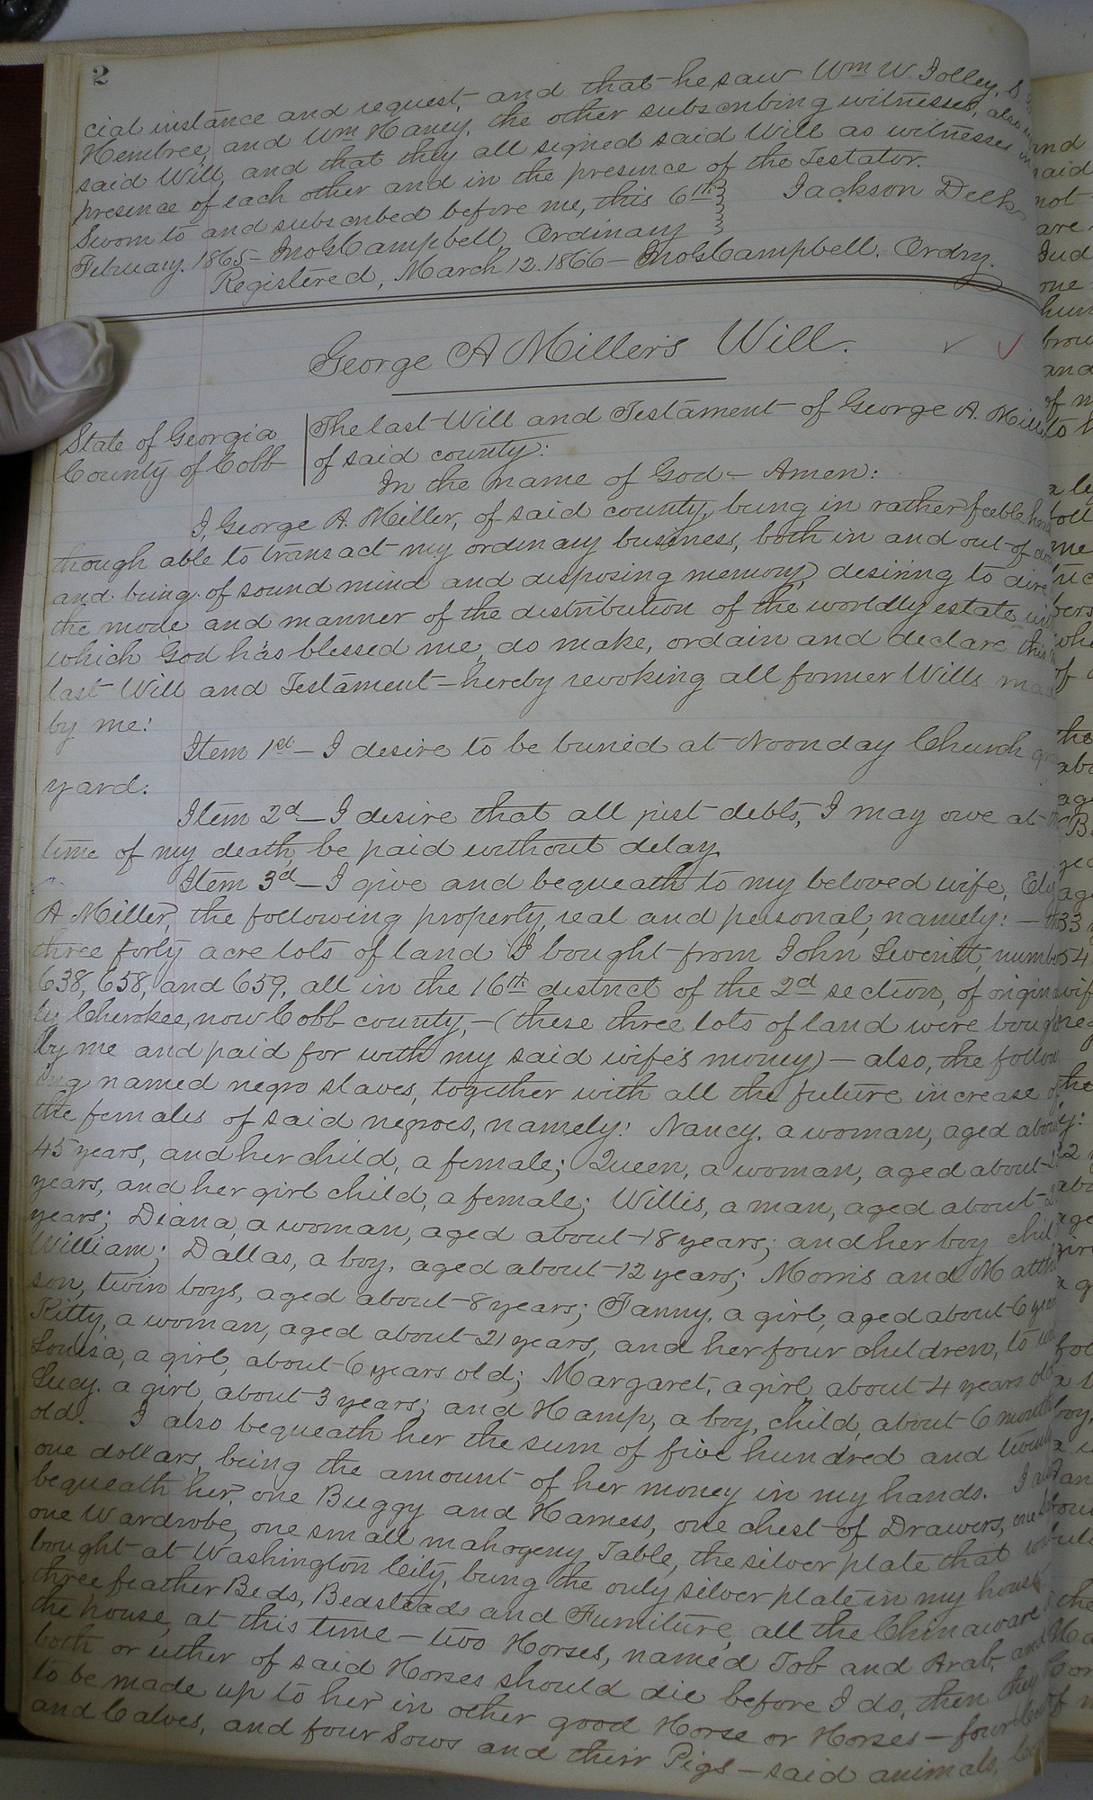 2
cial instance and request, and that he saw Wm W. Jolley,
Hembree, and Wm Haney, the other subscribing witnesses, also
said Will, and that they all signed said Will as witnesses in
presence of each other and in the presence of the Testator.
Sworn to and subscribed before me, this 6th Jackson Delk
February. 1865 - JnoG Campbell, Ordinary
Registered, March 12. 1866 - JnoG Campbell. Ordry.
George A Miller's Will.
State of Georgia
County of Cobb
The last Will and Testament of George A. Mill
of said county:
In the name of God - Amen:
I, George A. Miller, of said county, being in rather feeble
though able to transact my ordinary business, both in and out of
and being of sound mind and disposing memory, desiring to dire
the mode and manner of the distribution of the worldly estate
which God has blessed me, do make, ordain and declare this
last Will and Testament - hereby revoking all former Wills ma
by me:
Item 1st - I desire to be buried at Noonday Church
yard.
Item 2d - I desire that all just debts, I may owe at
time of my death, be paid without delay
Item 3d - I give and bequeath to my beloved wife,
A Miller, the following property, real and personal, namely: -
three forty acre lots of land I bought from John Leveritt, numbe
638, 658, and 659, all in the 16th district of the 2d section, of origin
ly Cherokee, now Cobb county, - (these three lots of land were boug
by me and paid for with my said wife's money) - also, the follow
ing named negro slaves, together with all the future increase of
the females of said negroes, namely: Nancy, a woman, aged about
45 years, and her child, a female; Queen, a woman, aged about
years, and her girl child, a female; Willis, a man, aged about
years; Diana, a woman, aged about 18 years; and her boy child
William; Dallas, a boy, aged about 12 years; Morris and Matti
son, twin boys, aged about 8 years; Fanny, a girl, aged about 6 years
Kitty, a woman, aged about 21 years, and her four children, to
Louisa, a girl, about 6 years old; Margaret, a girl, about 4 years old
Lucy, a girl, about 3 years; and Hamp, a boy, child, about 6 months
old. I also bequeath her the sum of five hundred and twenty
one dollars, being the amount of her money in my hands. I
bequeath her, one Buggy and Harness, one chest of Drawers, one
one Wardrobe, one small mahogeny Table, the silver plate that
bought at Washington City, being the only silver plate in my house
three feather Beds, Bedsteads and Furniture, all the Chinaware
the house, at this time - two Horses, named Job and Arab, and
both or either of said Horses should die before I do, then they
to be made up to her in other good Horse or Horses - four
and Calves, and four Sows and their Pigs - said animals,